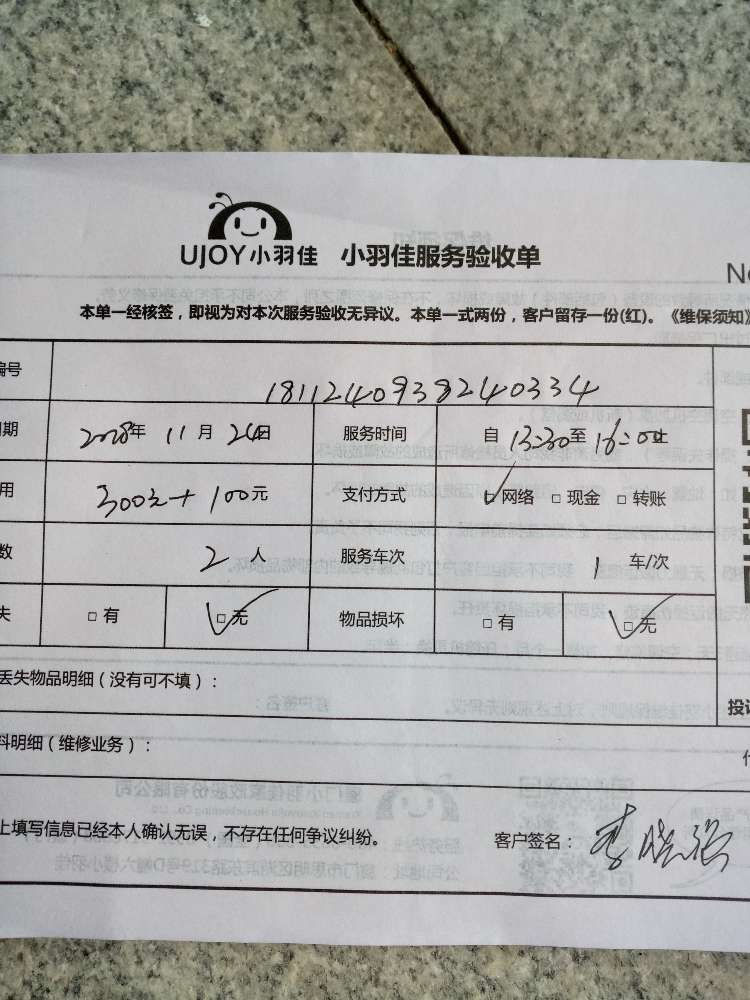 UJOY小羽佳 小羽佳服务验收单
N
本单一经核签，即视为对本次服务验收无异议。本单一式两份，客户留存一份(红)。《维保须知》
编号 1811240938240334
期 2018年 11月 24日 服务时间 自 13:30至 16:00止
用 300元+100元 支付方式 □网络 □现金 □转账
数 2人 服务车次 1 车/次
失 □有 □无 物品损坏 □有 □无
丢失物品明细（没有可不填）：
投诉
料明细（维修业务）：
上填写信息已经本人确认无误，不存在任何争议纠纷。 客户签名：李晓强